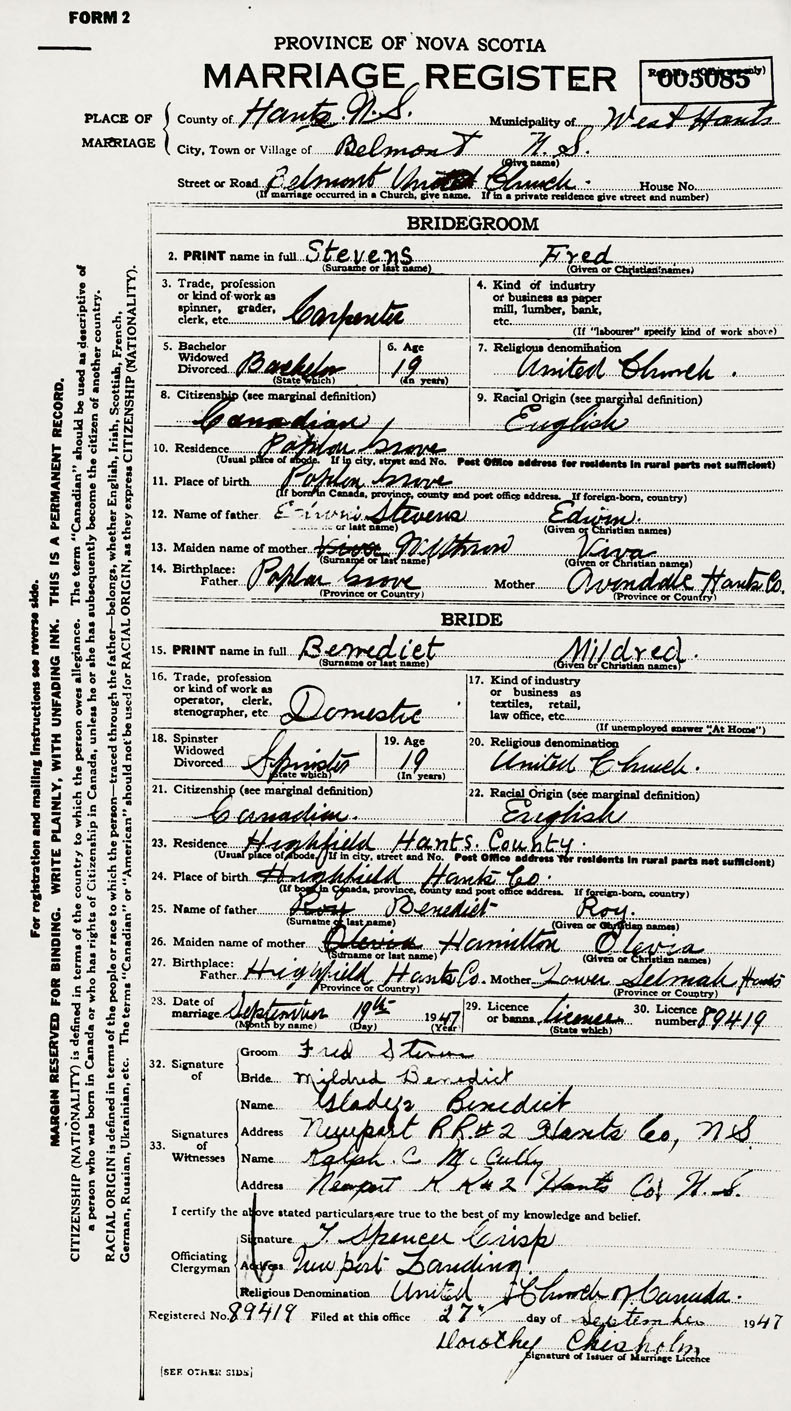 FORM 2
PROVINCE OF NOVA SCOTIA
MARRIAGE REGISTER
005085
PLACE OF MARRIAGE
County of Hants. N.S. Municipality of West Hants
City, Town or Village of Belmont N.S.
(Give name)
Street or Road Belmont United Church. House No.
(If marriage occurred in a Church, give name. If in a private residence give street and number)
BRIDEGROOM
2. PRINT name in full Stevens Fred
(Surname or last name) (Given or Christian names)
3. Trade, profession or kind of work as spinner, grader, clerk, etc. Carpenter
4. Kind of industry or business as paper mill, lumber, bank, etc.
(If "labourer" specify kind of work above)
5. Bachelor Widowed Divorced Bachelor
(State which)
6. Age 19
(In years)
7. Religious denomination United Church.
8. Citizenship (see marginal definition) Canadian
9. Racial Origin (see marginal definition) English
10. Residence Poplar Grove
(Usual place of abode. If in city, street and No. Post Office address for residents in rural parts not sufficient)
11. Place of birth Poplar Grove
(If born in Canada, province, county and post office address. If foreign-born, country)
12. Name of father Stevens Edwin.
or last name) (Given or Christian names)
13. Maiden name of mother Viva
(Surname or last name) (Given or Christian names)
14. Birthplace: Father Poplar Grove Mother Avondale Hants Co.
(Province or Country) (Province or Country)
BRIDE
15. PRINT name in full Benedict Mildred.
(Surname or last name) (Given or Christian names)
16. Trade, profession or kind of work as operator, clerk, stenographer, etc Domestic
17. Kind of industry or business as textiles, retail, law office, etc.
(If unemployed answer "At Home")
18. Spinster Widowed Divorced Spinster
(State which)
19. Age 19
(In years)
20. Religious denomination United Church.
21. Citizenship (see marginal definition) Canadian.
22. Racial Origin (see marginal definition) English
23. Residence Highfield Hants County.
(Usual place of abode. If in city, street and No. Post Office address for residents in rural parts not sufficient)
24. Place of birth Highfield Hants Co.
(If born in Canada, province, county and post office address. If foreign-born, country)
25. Name of father Roy Benedict Roy.
(Surname or last name) (Given or Christian names)
26. Maiden name of mother Olevia Hamilton Olevia
(Surname or last name) (Given or Christian names)
27. Birthplace: Father Highfield Hants Co. Mother Lower Selmah Hants
(Province or Country) (Province or Country)
28. Date of marriage September 19th 1947
(Month by name) (Day) (Year)
29. Licence or banns licence
(State which)
30. Licence number 89419
32. Signature of
Groom Fred Stevens
Bride Mildred Benedict
33. Signatures of Witnesses
Name Gladys Benedict
Address Newport R R # 2 Hants Co, N S.
Name Ralph C McCully
Address Newport R R # 2 Hants Co. N. S.
I certify the above stated particulars are true to the best of my knowledge and belief.
Officiating Clergyman
Signature T. Spencer Crisp
Address Newport Landing
Religious Denomination United Church of Canada.
Registered No. 89419 Filed at this office 27th day of September 1947
Dorothy Chisholm
Signature of Issuer of Marriage Licence
(SEE OTHER SIDE)
For registration and mailing instructions see reverse side.
MARGIN RESERVED FOR BINDING. WRITE PLAINLY, WITH UNFADING INK. THIS IS A PERMANENT RECORD.
CITIZENSHIP (NATIONALITY) is defined in terms of the country to which the person owes allegiance. The term "Canadian" should be used as descriptive of
a person who was born in Canada or who has rights of Citizenship in Canada, unless he or she has subsequently become the citizen of another country.
RACIAL ORIGIN is defined in terms of the people or race to which the person—traced through the father—belongs, whether English, Irish, Scottish, French,
German, Russian, Ukrainian, etc. The terms "Canadian" or "American" should not be used for RACIAL ORIGIN, as they express CITIZENSHIP (NATIONALITY).